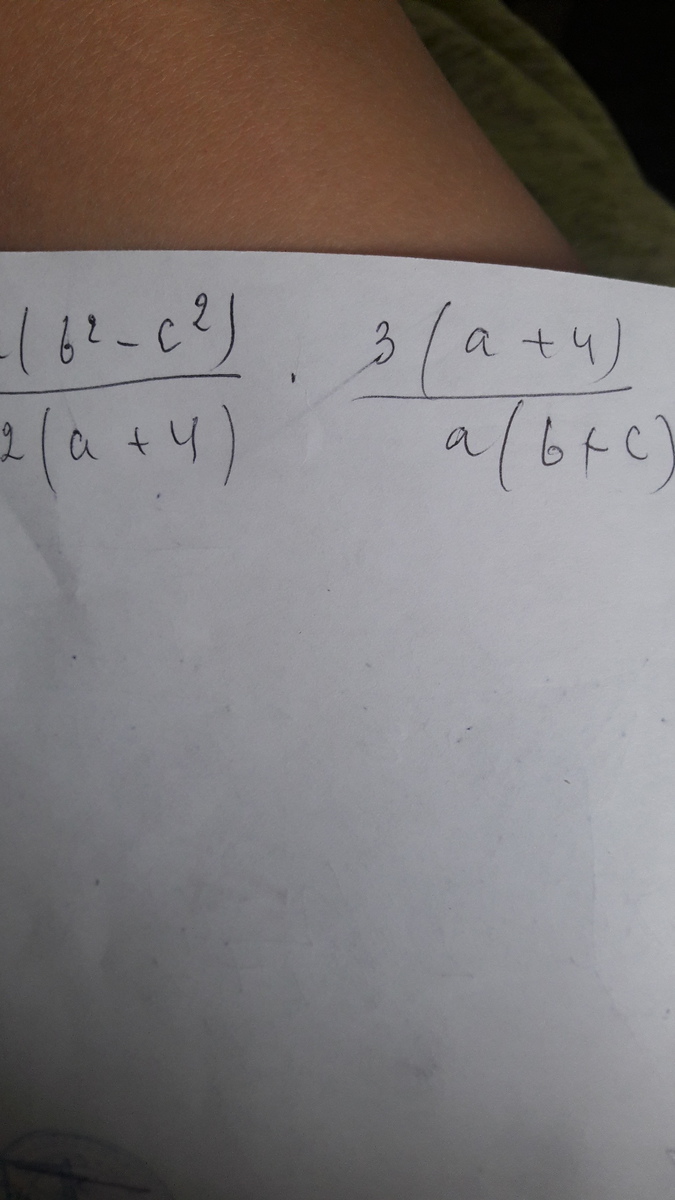 (b² - c²) / 2(a + 4) · 3(a + 4) / a(b + c)